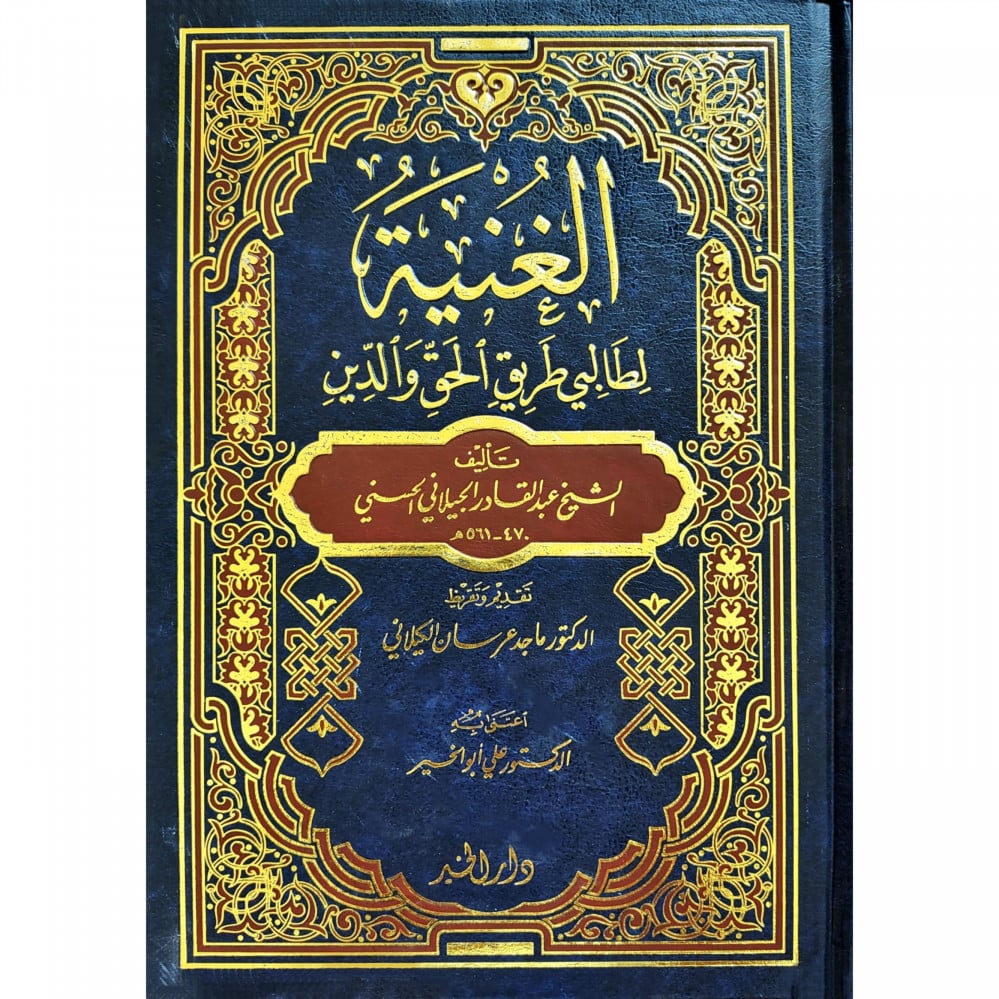 الغُنْيَةُ
لِطَالِبِي طَرِيقِ ٱلْحَقِّ وَٱلدِّينِ
تَأليف
الشيخ عبد القادر الجيلاني الحسني
٤٧٠ - ٥٦١ هـ
تَقديم وَتَقريظ
الدكتور ماجد عرسان الكيلاني
اعتنى به
الدكتور علي أبو الخير
دار الخير